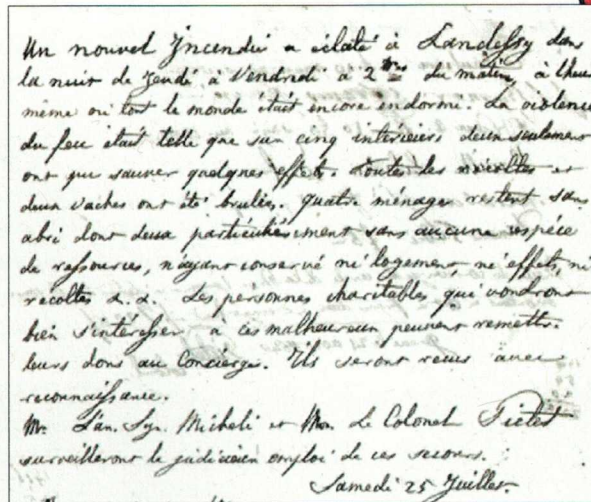 Un nouvel Jncendie a éclaté à Landecy dans
la nuit de Jeudi à Vendredi à 2 hres du matin, à l'heure
même où tout le monde était encore endormi. La violence
du feu était telle que sur cinq intérieurs deux seulement
ont pu sauver quelques effets. Toutes les récoltes et
deux vaches ont été brulées. Quatre ménages restent sans
abri dont deux particulièrement sans aucune espéce
de ressources, n'ayant conservé ni logement, ni effets, ni
récoltes &. &. Les personnes charitables qui voudront
bien s'intéresser à ces malheureux peuvent remettre
leurs dons au Concierge. Ils seront reçus avec
reconnaissance.
Mr. L'an. Syn. Micheli et Mon. Le Colonel Pictet
surveilleront le judicieux emploi de ces secours.
Samedi 25 Juillet